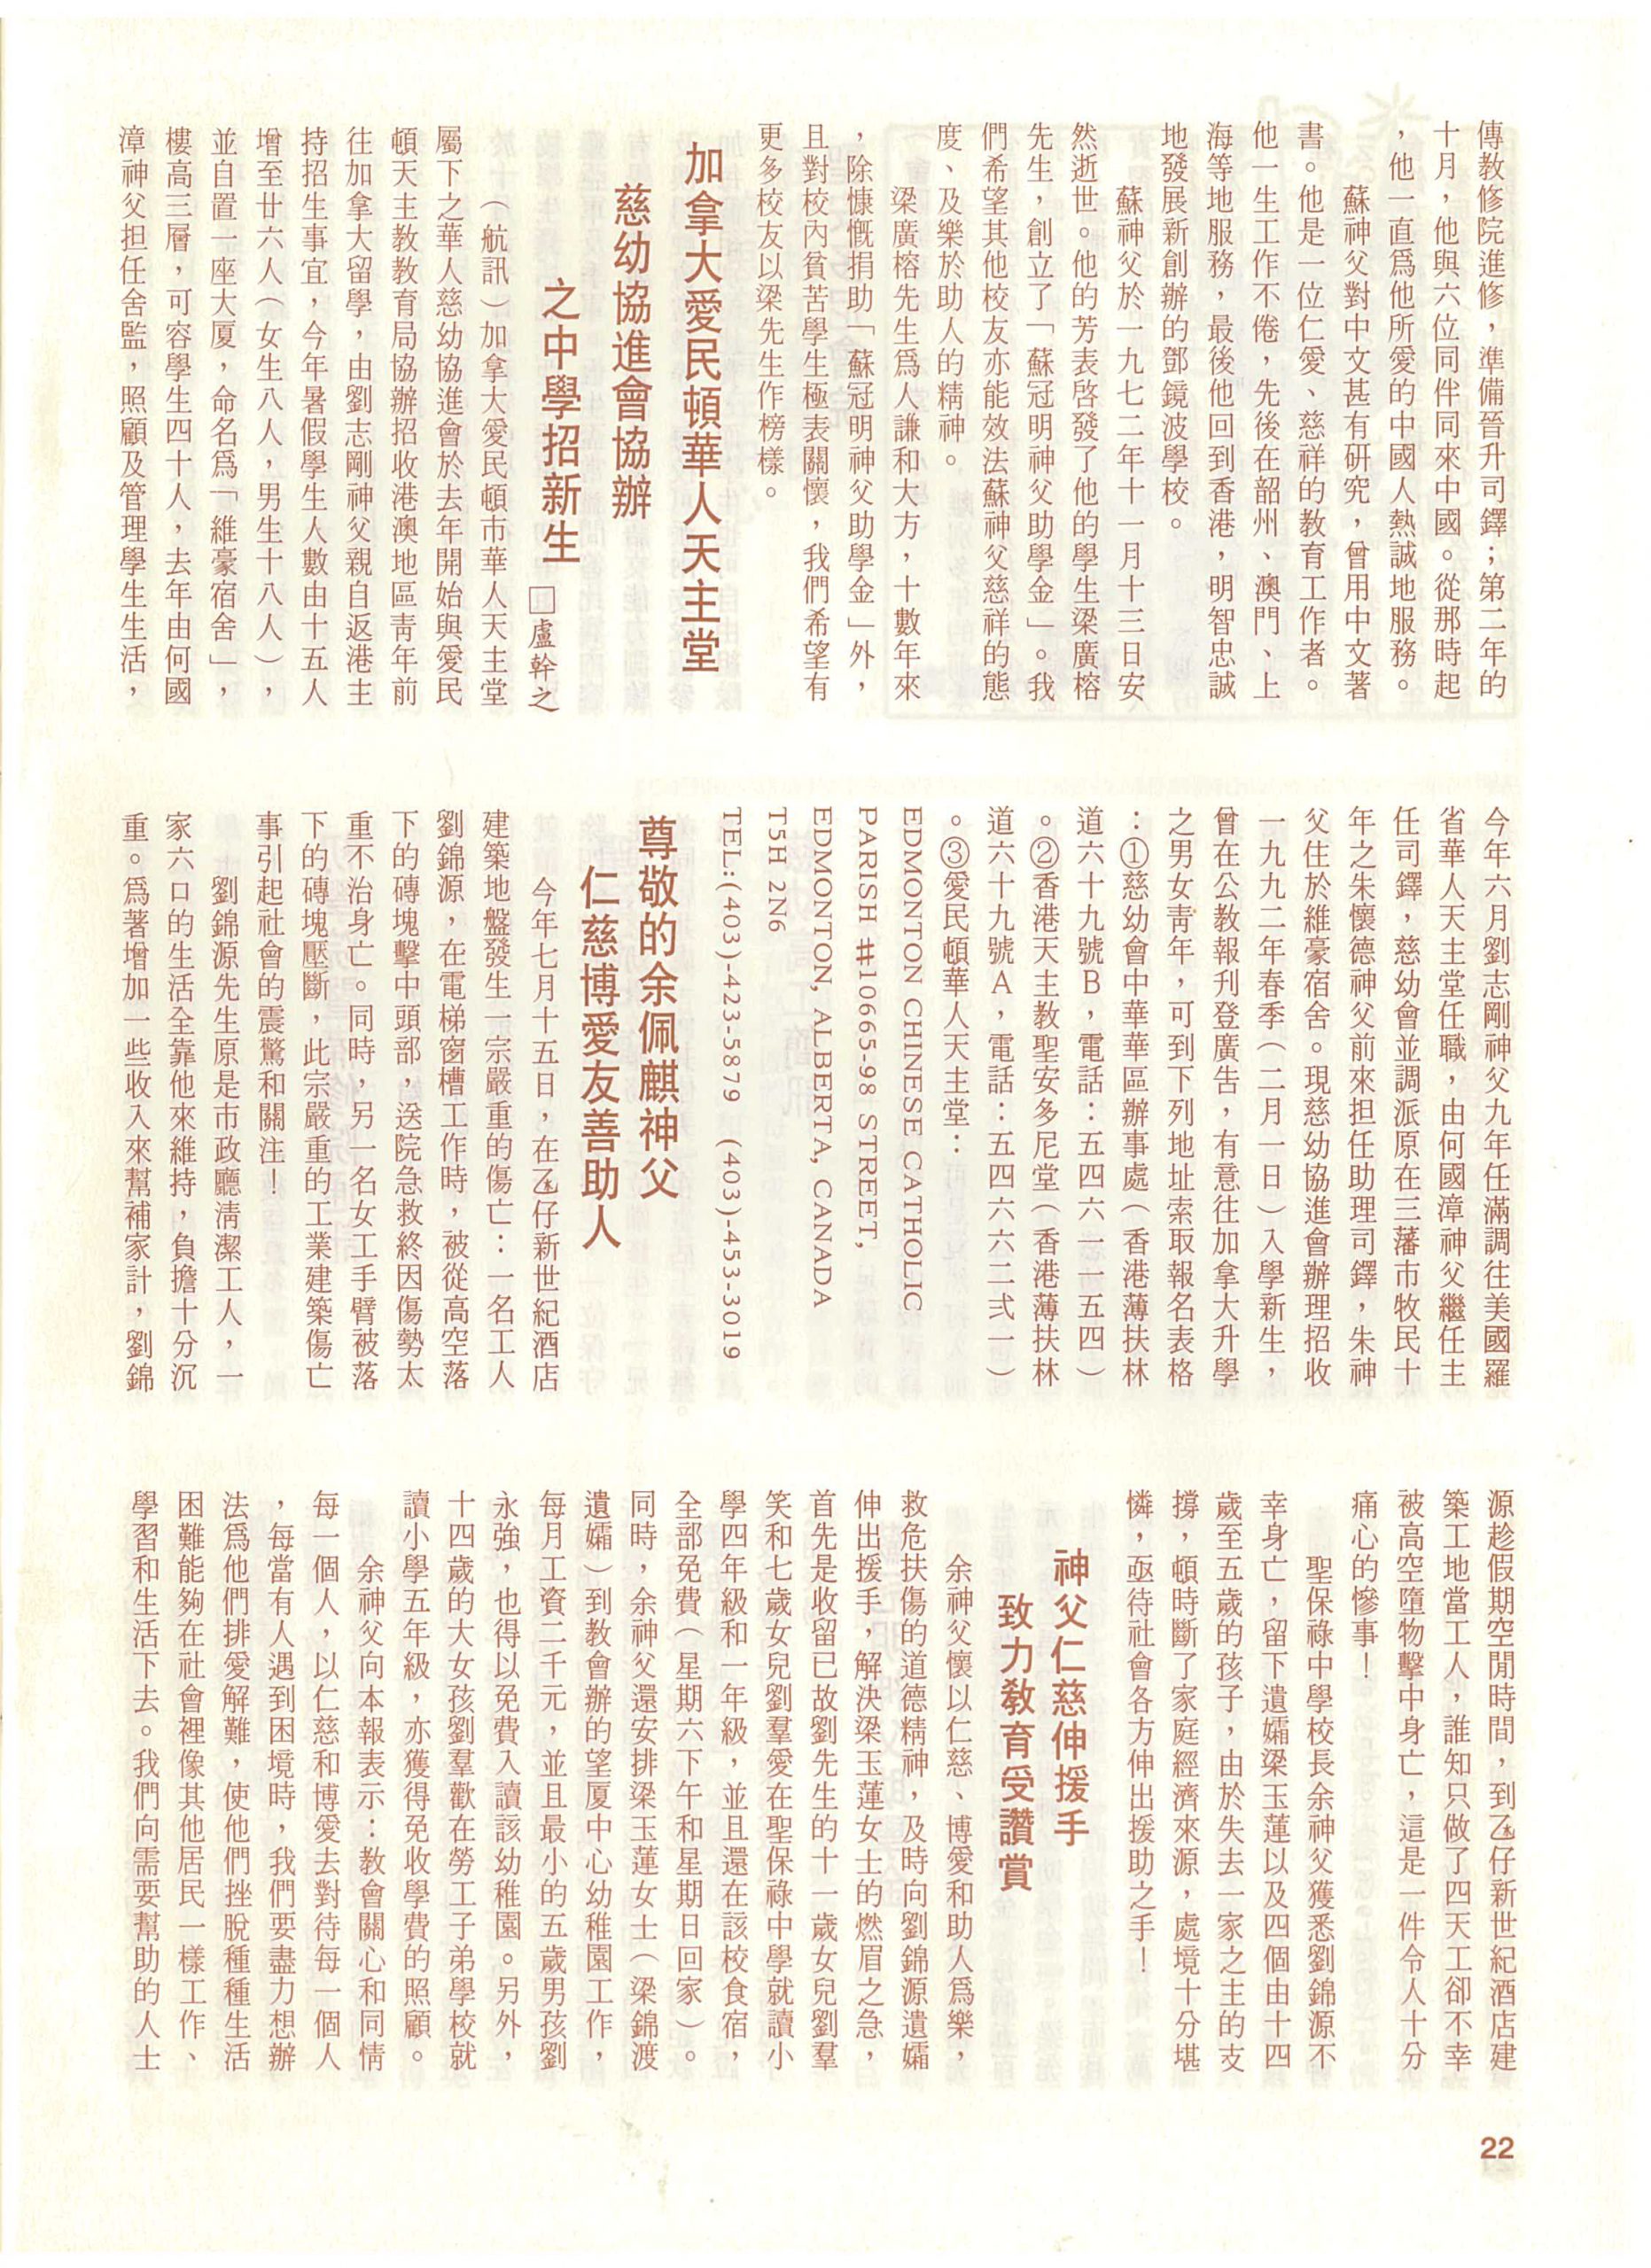 傳教修院進修，準備晉升司鐸；第二年的
十月，他與六位同伴同來中國。從那時起
，他一直爲他所愛的中國人熱誠地服務。
蘇神父對中文甚有研究，曾用中文著
書。他是一位仁愛、慈祥的教育工作者。
他一生工作不倦，先後在韶州、澳門、上
海等地服務，最後他回到香港，明智忠誠
地發展新創辦的鄧鏡波學校。
蘇神父於一九七二年十一月十三日安
然逝世。他的芳表啓發了他的學生梁廣榕
先生，創立了「蘇冠明神父助學金」。我
們希望其他校友亦能效法蘇神父慈祥的態
度、及樂於助人的精神。
梁廣榕先生爲人謙和大方，十數年來
，除慷慨捐助「蘇冠明神父助學金」外，
且對校內貧苦學生極表關懷，我們希望有
更多校友以梁先生作榜樣。
加拿大愛民頓華人天主堂
慈幼協進會協辦
之中學招新生
□盧幹之
（航訊）加拿大愛民頓市華人天主堂
屬下之華人慈幼協進會於去年開始與愛民
頓天主教教育局協辦招收港澳地區靑年前
往加拿大留學，由劉志剛神父親自返港主
持招生事宜，今年暑假學生人數由十五人
增至廿六人（女生八人，男生十八人），
並自置一座大厦，命名爲「維豪宿舍」，
樓高三層，可容學生四十人，去年由何國
漳神父担任舍監，照顧及管理學生生活，
今年六月劉志剛神父九年任滿調往美國羅
省華人天主堂任職，由何國漳神父繼任主
任司鐸，慈幼會並調派原在三藩市牧民十
年之朱懷德神父前來担任助理司鐸，朱神
父住於維豪宿舍。現慈幼協進會辦理招收
一九九二年春季（二月一日）入學新生，
曾在公教報刊登廣告，有意往加拿大升學
之男女靑年，可到下列地址索取報名表格
：①慈幼會中華華區辦事處（香港薄扶林
道六十九號B，電話：五四六一一五四）
。②香港天主教聖安多尼堂（香港薄扶林
道六十九號A，電話：五四六六二弍一）
。③愛民頓華人天主堂：
EDMONTON CHINESE CATHOLIC
PARISH #10665-98 STREET,
EDMONTON, ALBERTA, CANADA
T5H 2N6
TEL:(403)-423-5879 (403)-453-3019
尊敬的余佩麒神父
仁慈博愛友善助人
今年七月十五日，在氹仔新世紀酒店
建築地盤發生一宗嚴重的傷亡：一名工人
劉錦源，在電梯窗槽工作時，被從高空落
下的磚塊擊中頭部，送院急救終因傷勢太
重不治身亡。同時，另一名女工手臂被落
下的磚塊壓斷，此宗嚴重的工業建築傷亡
事引起社會的震驚和關注！
劉錦源先生原是市政廳淸潔工人，一
家六口的生活全靠他來維持，負擔十分沉
重。爲著增加一些收入來幫補家計，劉錦
源趁假期空閒時間，到氹仔新世紀酒店建
築工地當工人，誰知只做了四天工卻不幸
被高空墮物擊中身亡，這是一件令人十分
痛心的慘事！
聖保祿中學校長余神父獲悉劉錦源不
幸身亡，留下遺孀梁玉蓮以及四個由十四
歲至五歲的孩子，由於失去一家之主的支
撐，頓時斷了家庭經濟來源，處境十分堪
憐，亟待社會各方伸出援助之手！
神父仁慈伸援手
致力敎育受讚賞
余神父懷以仁慈、博愛和助人爲樂，
救危扶傷的道德精神，及時向劉錦源遺孀
伸出援手，解決梁玉蓮女士的燃眉之急，
首先是收留已故劉先生的十一歲女兒劉羣
笑和七歲女兒劉羣愛在聖保祿中學就讀小
學四年級和一年級，並且還在該校食宿，
全部免費（星期六下午和星期日回家）。
同時，余神父還安排梁玉蓮女士（梁錦渡
遺孀）到教會辦的望厦中心幼稚園工作，
每月工資二千元，並且最小的五歲男孩劉
永強，也得以免費入讀該幼稚園。另外，
十四歲的大女孩劉羣歡在勞工子弟學校就
讀小學五年級，亦獲得免收學費的照顧。
余神父向本報表示：教會關心和同情
每一個人，以仁慈和博愛去對待每一個人
，每當有人遇到困境時，我們要盡力想辦
法爲他們排愛解難，使他們挫脫種種生活
困難能夠在社會裡像其他居民一樣工作、
學習和生活下去。我們向需要幫助的人士
22